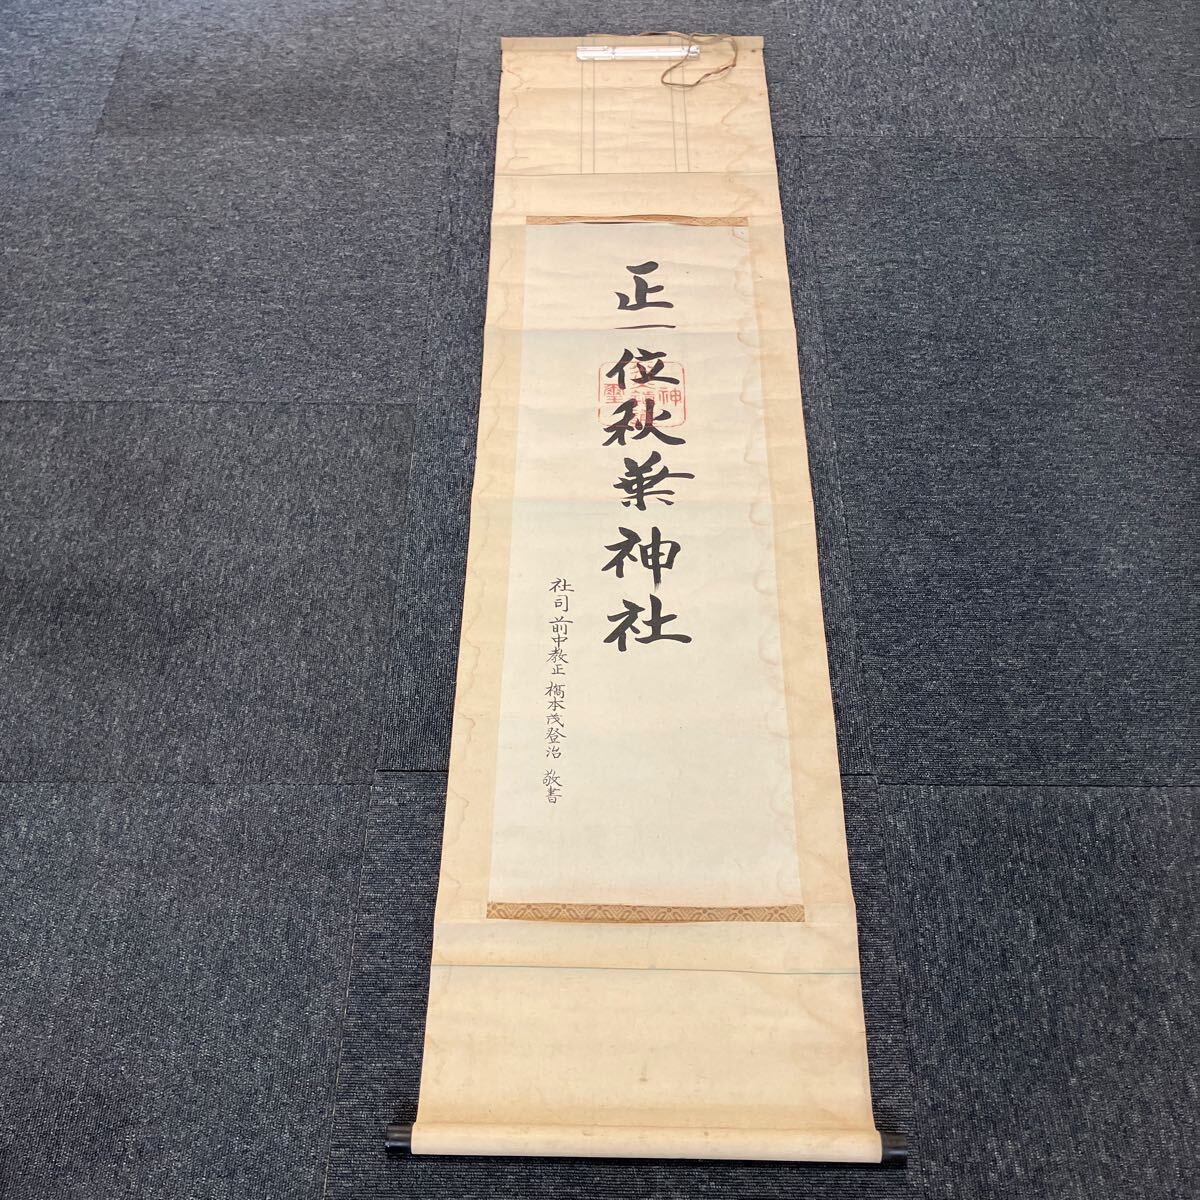 正一位秋葉神社
社司 前中教正 橋本茂登治 敬書